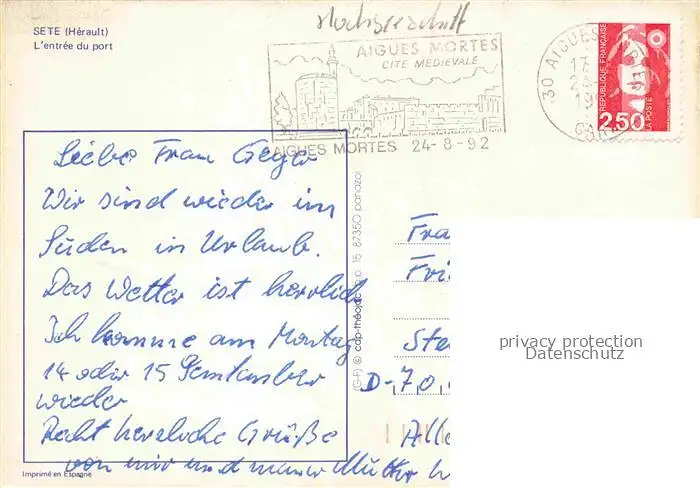 SETE (Hérault)
L'entrée du port
AIGUES MORTES
CITE MEDIEVALE
AIGUES MORTES 24-8-92
30 AIGUES MORTES
17
GARD
REPUBLIQUE FRANÇAISE
2,50
LA POSTE
Liebe Frau Geyer
Wir sind wieder im
Süden in Urlaub.
Das Wetter ist herrlich
Ich komme am Montag
14 oder 15 September
wieder
Recht herzliche Grüße
von mir und meiner Mutter
(G-F) © cap-théojac b.p. 15 87350 panazol
Fra
Fri
Ste
D-70
Alle
privacy protection
Datenschutz
Imprimé en Espagne